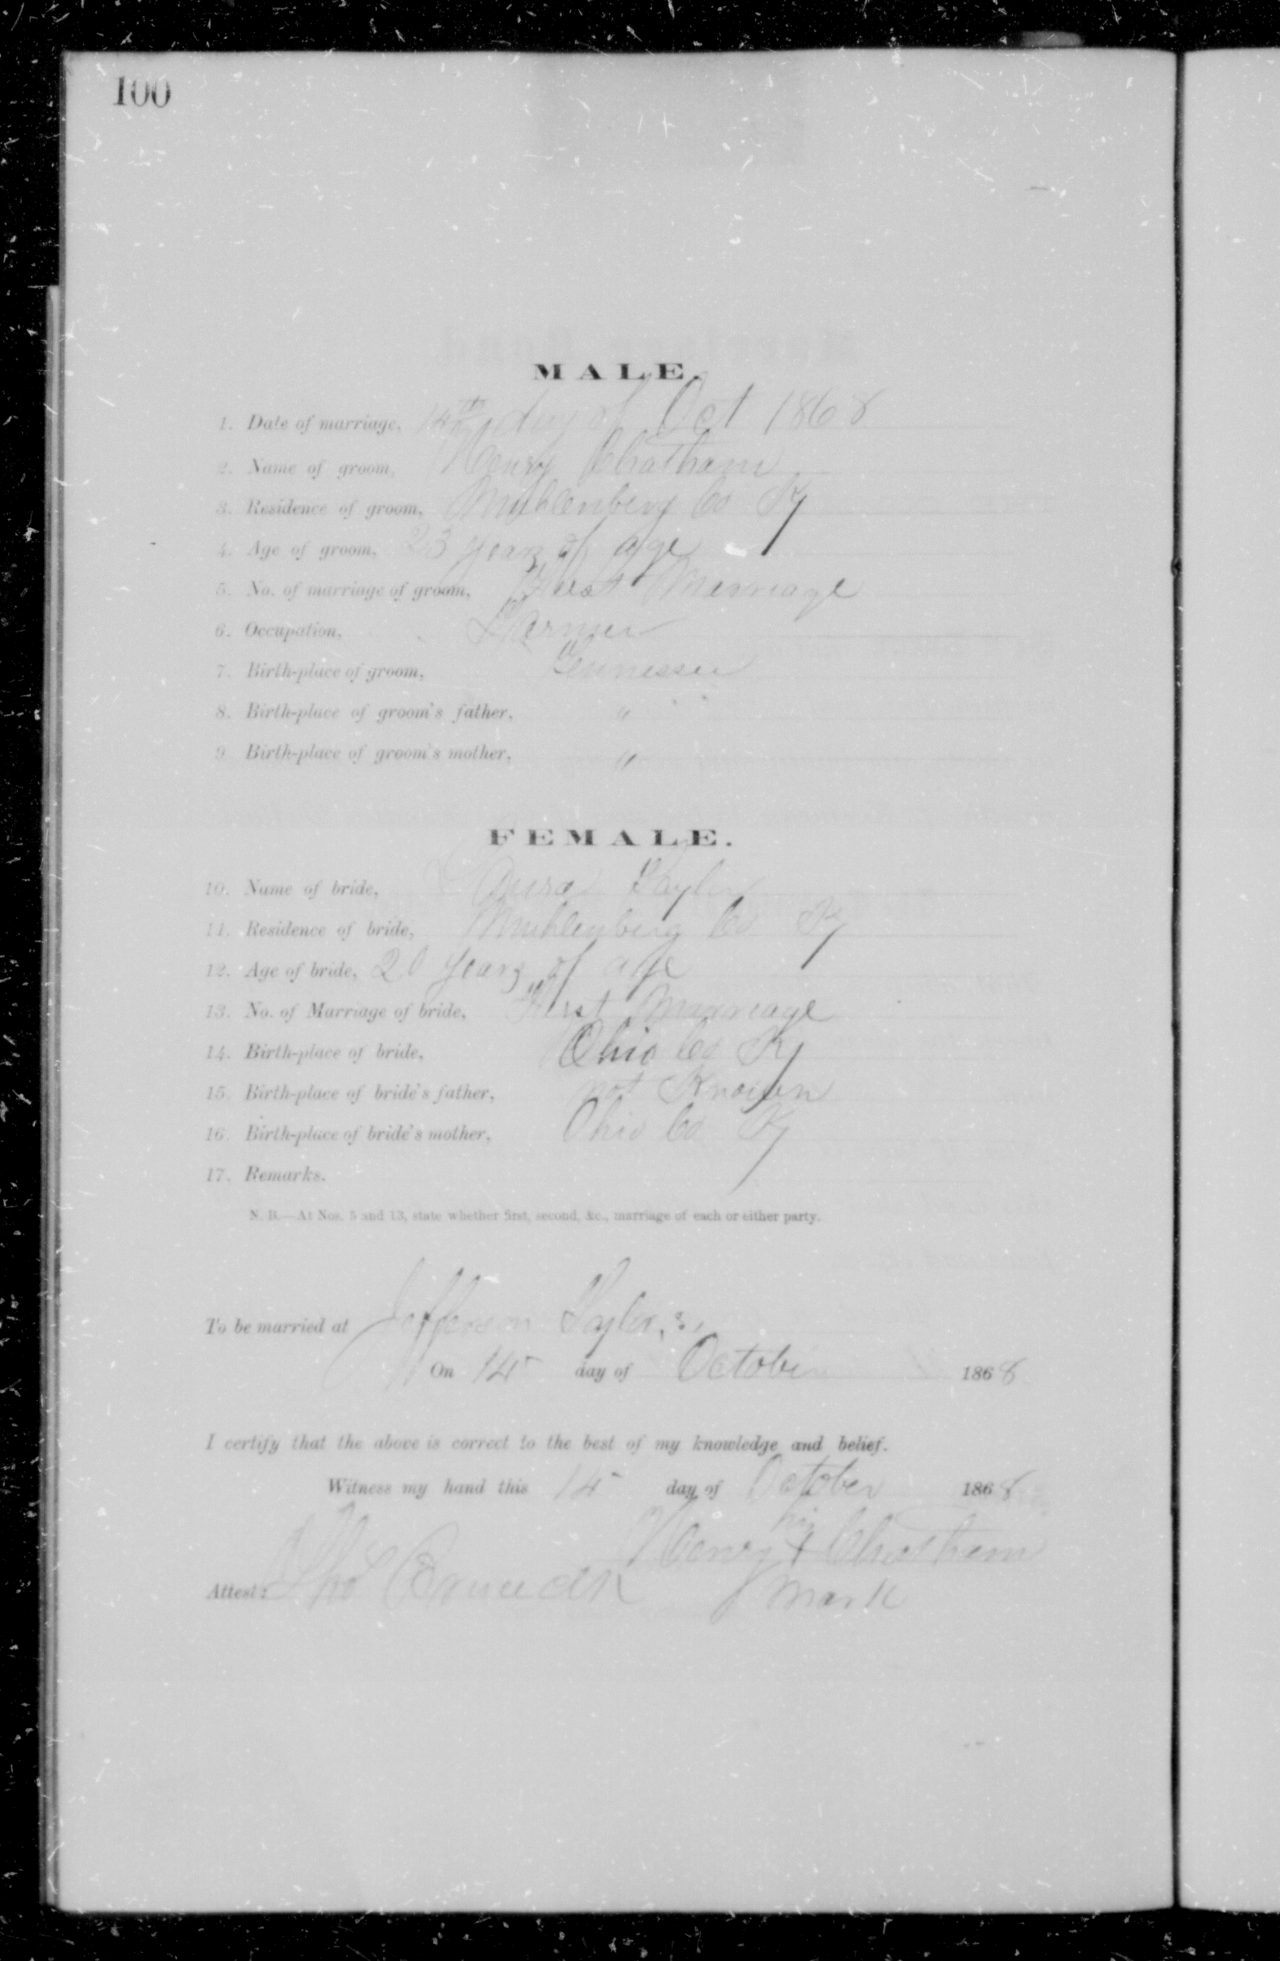 100
MALE.
1. Date of marriage, 14th day of Oct 1868
2. Name of groom, Henry Chatham
3. Residence of groom, Muhlenberg Co Ky
4. Age of groom, 23 years of age
5. No. of marriage of groom, First Marriage
6. Occupation, Farmer
7. Birth-place of groom, Tennessee
8. Birth-place of groom's father, "
9. Birth-place of groom's mother, "
FEMALE.
10. Name of bride, Laura Taylor
11. Residence of bride, Muhlenberg Co Ky
12. Age of bride, 20 years of age
13. No. of Marriage of bride, First Marriage
14. Birth-place of bride, Ohio Co Ky
15. Birth-place of bride's father, not Known
16. Birth-place of bride's mother, Ohio Co Ky
17. Remarks.
N. B.—At Nos. 5 and 13, state whether first, second, &c., marriage of each or either party.
To be married at Jefferson Taylor,s.
On 14 day of October 1868
I certify that the above is correct to the best of my knowledge and belief.
Witness my hand this 14 day of October 1868
his
Henry X Chatham
Attest: Tho mark